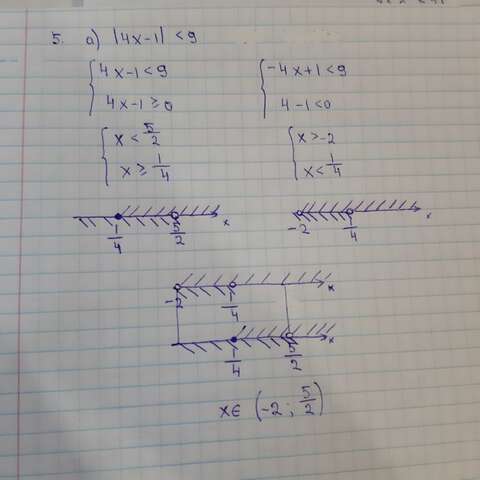 5. а) |4x-1| < 9
{ 4x-1<9
4x-1≥0
{ -4x+1<9
4-1<0
{ x < 5/2
x ≥ 1/4
{ x>-2
x< 1/4
1/4 5/2 x
-2 1/4 x
-2 1/4 x
1/4 5/2 x
x∈ (-2; 5/2)